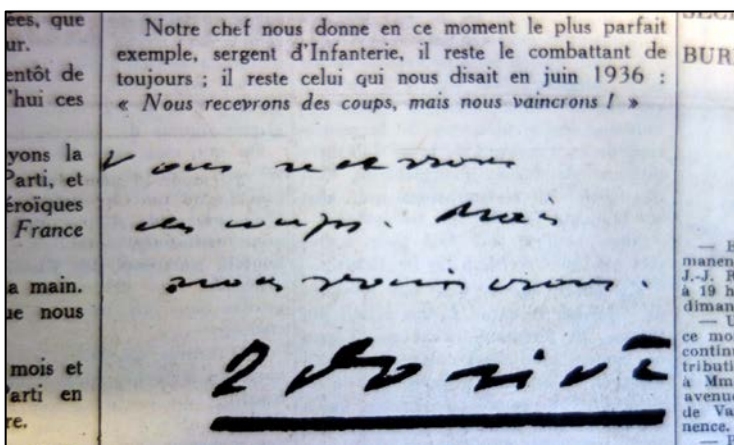 ées, que
ur.
entôt de
'hui ces
yons la
Parti, et
éroïques
France
a main.
ue nous
mois et
Parti en
re.
Notre chef nous donne en ce moment le plus parfait
exemple, sergent d'Infanterie, il reste le combattant de
toujours ; il reste celui qui nous disait en juin 1936 :
« Nous recevrons des coups, mais nous vaincrons ! »
Nous recevrons
des coups. Mais
nous vaincrons.
J Doriot
BUR
manen
J.-J. R
à 19 h
diman
— U
ce mo
continu
tributi
à Mm
avenue
de Va
nence.